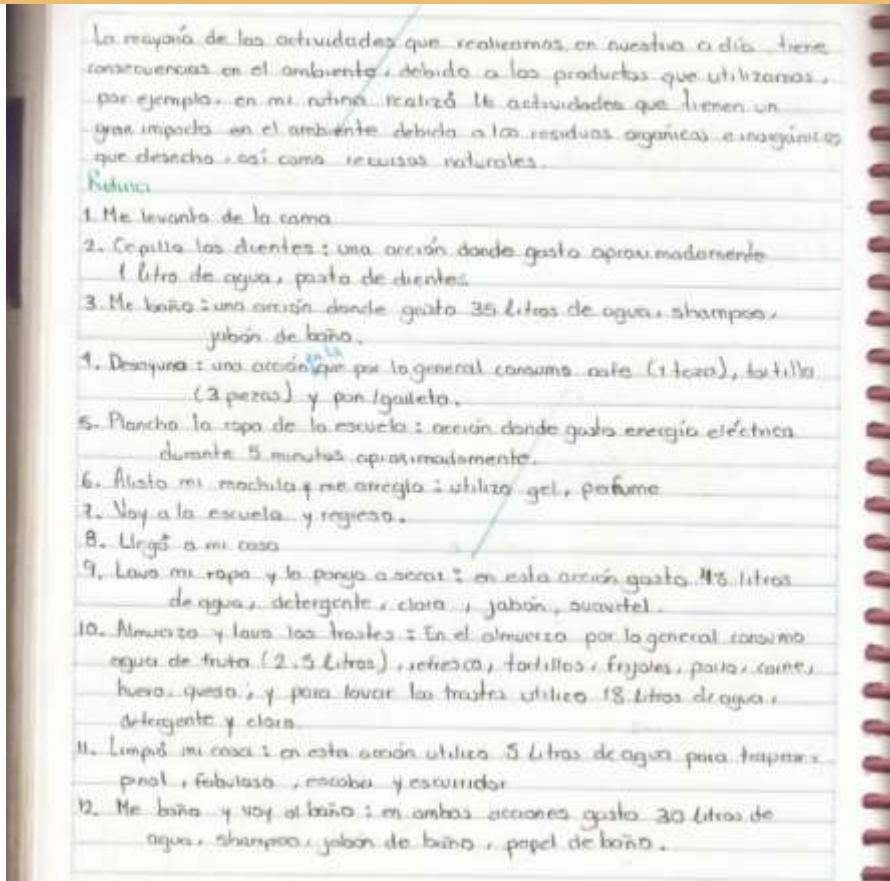 La mayoría de las actividades que realizamos en nuestro a día tiene
consecuencias en el ambiente, debido a los productos que utilizamos,
por ejemplo, en mi rutina realizó 16 actividades que tienen un
gran impacto en el ambiente debido a los residuos organicos e inorgánicos
que desecho, así como recursos naturales.
Rutina
1. Me levanto de la cama
2. Cepillo los dientes: una acción donde gasto aproximadamente
1 litro de agua, pasta de dientes.
3. Me baño: una acción donde gasto 35 litros de agua, shampoo,
jabón de baño.
4. Desayuno: una acción en la que por lo general consumo cafe (1 taza), tortilla
(3 piezas) y pan/galleta.
5. Plancho la ropa de la escuela: acción donde gasto energía eléctrica
durante 5 minutos aproximadamente.
6. Alisto mi mochila y me arreglo: utilizo gel, perfume
7. Voy a la escuela y regreso.
8. Llegó a mi casa
9. Lavo mi ropa y la pongo a secar: en esta acción gasto litros
de agua, detergente, cloro, jabón, suavitel.
10. Almuerzo y lavo los trastes: En el almuerzo por lo general consumo
agua de fruta (2.5 Litros), refresco, tortillas, frijoles, pollo, carne,
huevo, queso; y para lavar los trastes utilizo 18 Litros de agua,
detergente y cloro.
11. Limpió mi casa: en esta acción utilizo 5 Litros de agua para trapear,
pinol, fabuloso, escoba y escurridor
12. Me baño y voy al baño: en ambas acciones gasto 30 litros de
agua, shampoo, jabón de baño, papel de baño.